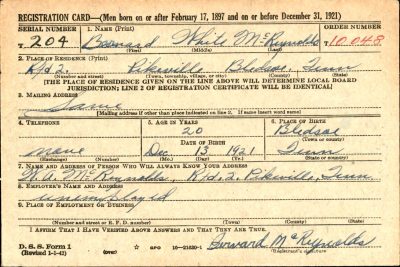 REGISTRATION CARD—(Men born on or after February 17, 1897 and on or before December 31, 1921)
SERIAL NUMBER 1. NAME (Print) ORDER NUMBER
204 Leonard White McReynolds 10,048
(First) (Middle) (Last)
2. PLACE OF RESIDENCE (Print)
Rfd 2. Pikeville Bledsoe, Tenn
(Number and street) (Town, township, village, or city) (County) (State)
[THE PLACE OF RESIDENCE GIVEN ON THE LINE ABOVE WILL DETERMINE LOCAL BOARD
JURISDICTION; LINE 2 OF REGISTRATION CERTIFICATE WILL BE IDENTICAL]
3. MAILING ADDRESS
Same
[Mailing address if other than place indicated on line 2. If same insert word same]
4. TELEPHONE 5. AGE IN YEARS 6. PLACE OF BIRTH
20 Bledsoe
DATE OF BIRTH (Town or county)
none Dec 13 1921 Tenn
(Exchange) (Number) (Mo.) (Day) (Yr.) (State or country)
7. NAME AND ADDRESS OF PERSON WHO WILL ALWAYS KNOW YOUR ADDRESS
W. A. McReynolds, Rfd. 2. Pikeville, Tenn.
8. EMPLOYER'S NAME AND ADDRESS
unemployed
9. PLACE OF EMPLOYMENT OR BUSINESS
(Number and street or R. F. D. number) (Town) (County) (State)
I AFFIRM THAT I HAVE VERIFIED ABOVE ANSWERS AND THAT THEY ARE TRUE.
D. S. S. Form 1 (over) GPO 16—21630-1 McReynolds
(Revised 1-1-42) (Registrant's signature)